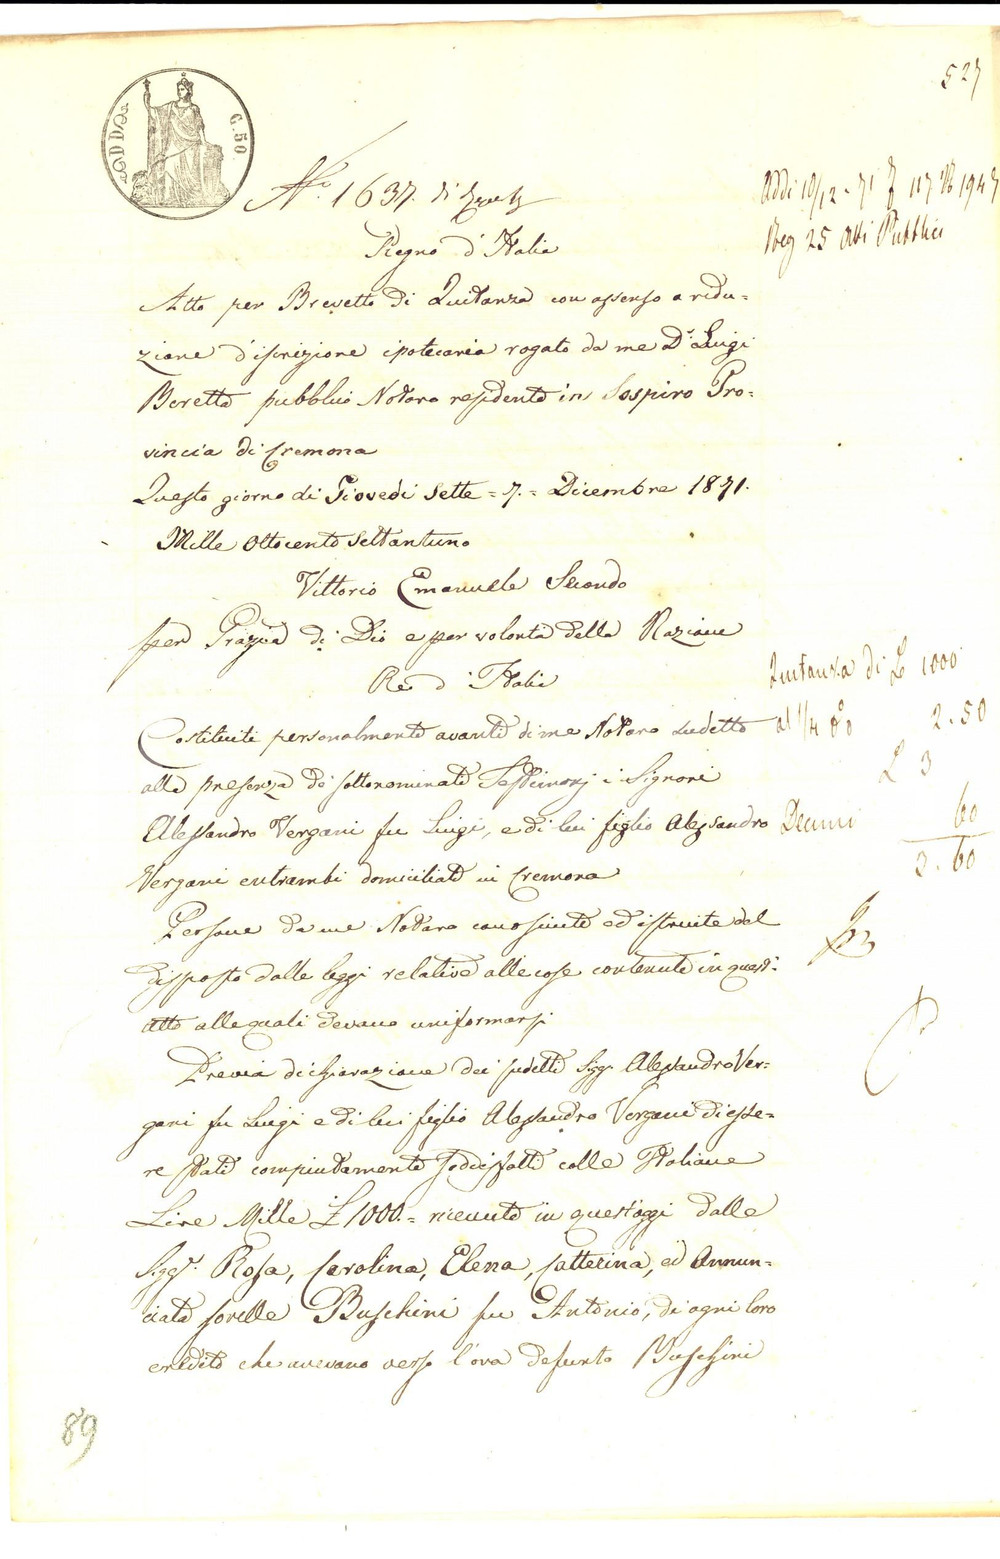 527
C. 50
N.° 1637. di
Addi 10/12 - 71 117 N 1947
Reg 25 Atti Pubblici
Regno d'Italia
Atto per Brevetto di Quitanza con assenso a ridu-
zione d'iscrizione ipotecaria rogato da me Dr. Luigi
Beretta pubblico Notaro residente in Sospiro Pro-
vincia di Cremona
Questo giorno di Giovedi sette = 7. = Dicembre 1871.
Mille Ottocento Settantuno
Vittorio Emanuele Secondo
per Grazia di Dio e per volontà della Nazione
Re d'Italia
Quitanza di L 1000
al 1/4 0/0 2.50
L 3
Decimi 60
3.60
Costituiti personalmente avanti di me Notaro sudetto
alla presenza de' sottonominati Testimonj i Signori
Alessandro Vergani fu Luigi, e di lui figlio Alessandro
Vergani entrambi domiciliati in Cremona
Persone da me Notaro conosciute ed istruite del
disposto dalle leggi relative alle cose contenute in quest'-
atto alle quali devano uniformarsi
Previa dichiarazione dei sudetti Sigg. Alessandro Ver-
gani fu Luigi e di lui figlio Alessandro Vergani di esse-
re stati compiutamente sodisfatti colle Italiane
Lire Mille £ 1000. = ricevute in quest'oggi dalle
Sigg.e Rosa, Carolina, Elena, Catterina, ed Annun-
ciata sorelle Buschini fu Antonio, di ogni loro
credito che avevano verso l'ora defunto Buschini
89